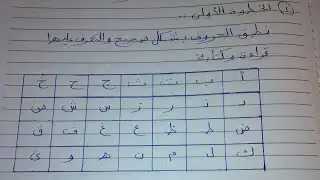 (١) الخطوة الأولى ..
نطق الحروف بشكل صحيح والتعرف عليها
قراءة وكتابة
أ ب ت ث ج ح خ
د ذ ر ز س ش ص
ض ط ظ ع غ ف ق
ك ل م ن هـ و ى